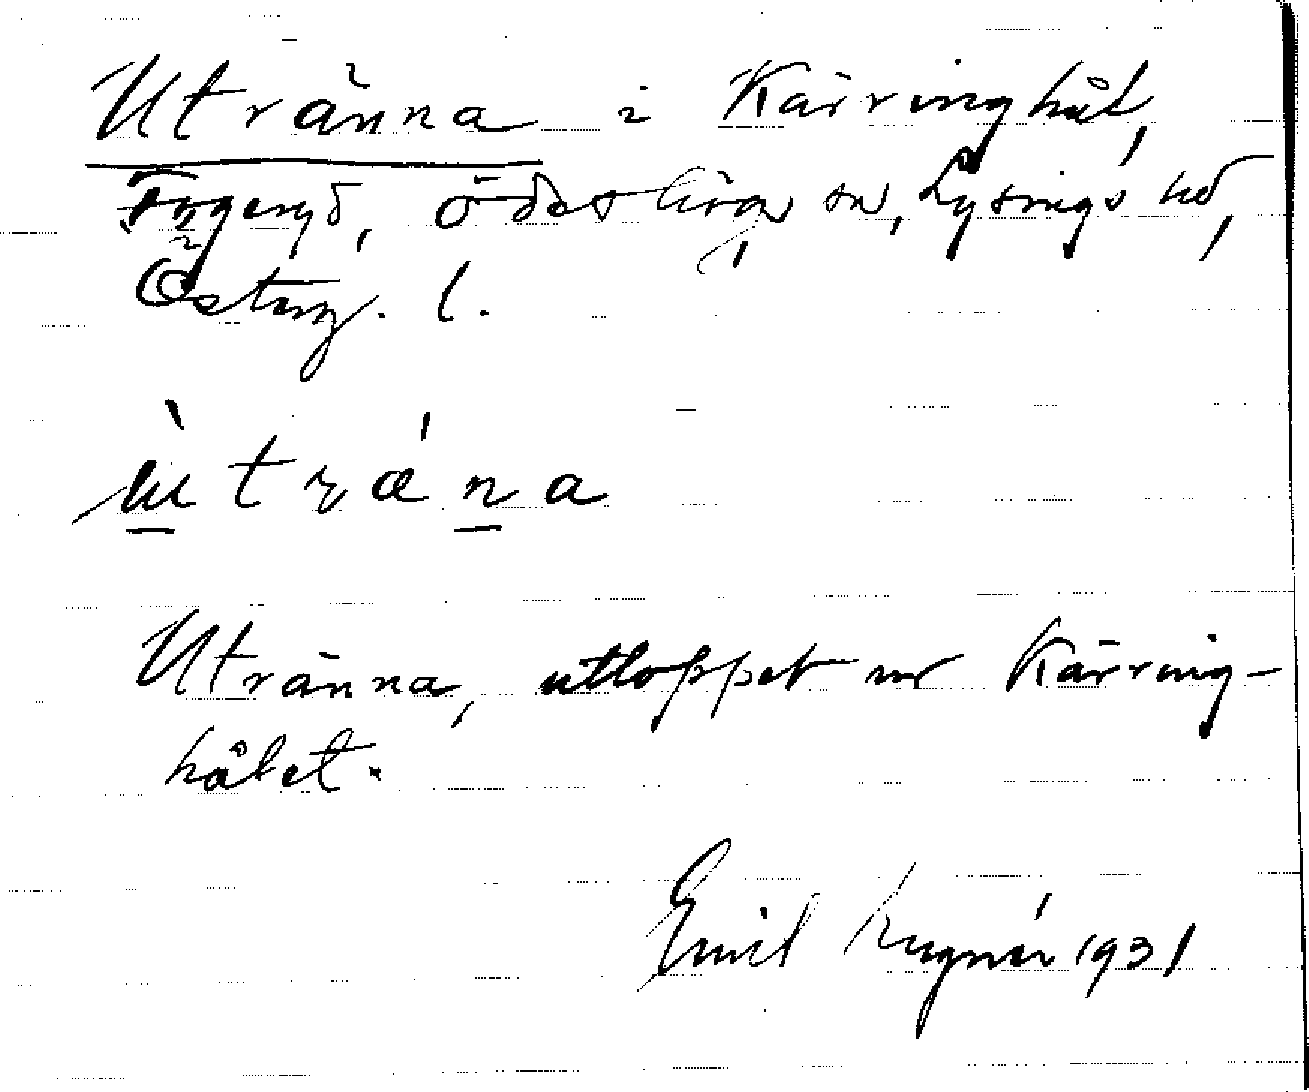 Utränna i Kärringhål,
Fygeryd, Ödeshögs sn, Lysings hd,
Österg. l.
ùtrǽna
Utränna, utloppet ur Kärring-
hålet.
Emil Lugnér 1931